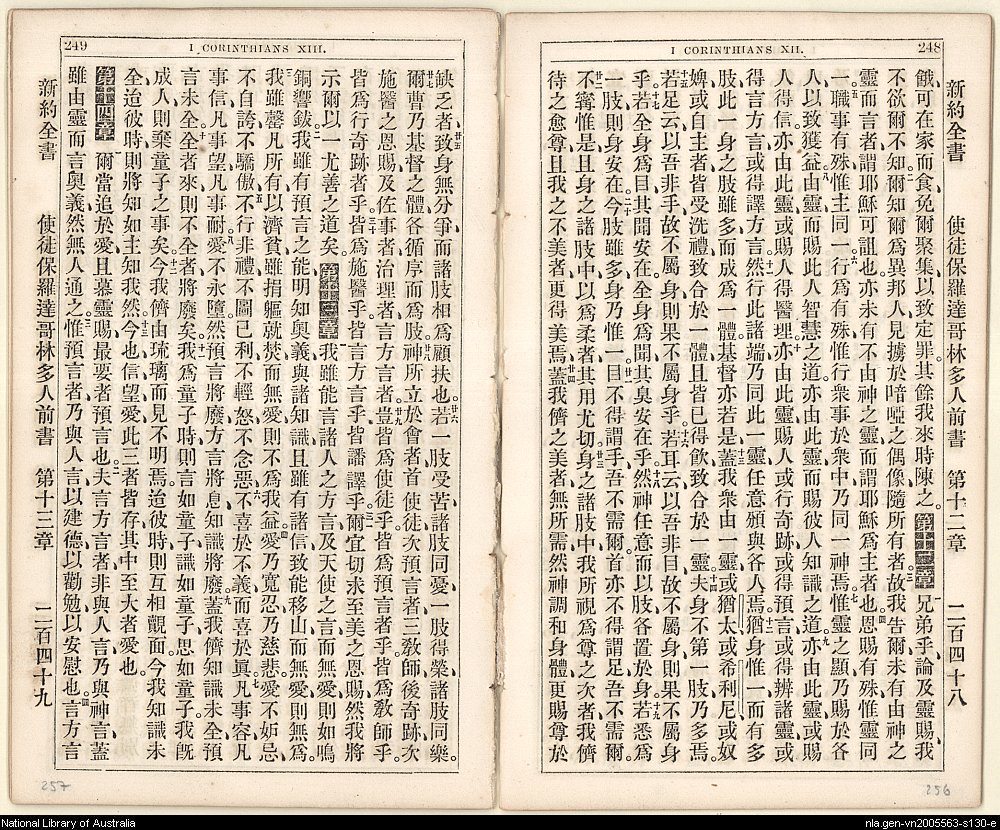 248
I CORINTHIANS XII.
新約全書 使徒保羅達哥林多人前書 第十二章 二百四十八
餓可在家而食免爾聚集以致定罪其餘我來時陳之。第十二章 兄弟乎論及靈賜我
不欲爾不知爾知爾爲異邦人見擄於喑啞之偶像隨所有者故我告爾未有由神之
靈而言者謂耶穌可詛也亦未有不由神之靈而謂耶穌爲主者也恩賜有殊惟靈同
一職事有殊惟主同一行爲有殊惟行衆事於衆中乃同一神焉惟靈之顯乃賜於各
人以致獲益由靈而賜此人智慧之道亦由此靈而賜彼人知識之道亦由此靈或賜
人得信亦由此靈或賜人得醫理亦由此靈賜人或行奇跡或得預言或得辨諸靈或
得言方言或得譯方言然行此諸端乃同此一靈任意頒與各人焉猶身惟一而有多
肢此一身之肢雖多而成爲一體基督亦若是蓋我衆由一靈或猶太或希利尼或奴
婢或自主者皆受洗禮致合於一體且皆已得飲致合於一靈夫身不第一肢乃多焉
若足云以吾非手故不屬身則果不屬身乎若耳云以吾非目故不屬身則果不屬身
乎若全身爲目其聞安在全身爲聞其臭安在乎然神任意而以肢各置於身若悉爲
一肢則身安在今肢雖多身乃惟一目不得謂手吾不需爾首亦不得謂足吾不需爾
不寗惟是且身之諸肢中以爲柔者其用尤切身之諸肢中我所視爲尊之次者我儕
待之愈尊且我之不美者更得美焉蓋我儕之美者無所需然神調和身體更賜尊於
256
249
I CORINTHIANS XIII.
缺之者致身無分爭而諸肢相爲顧扶也若一肢受苦諸肢同憂一肢得榮諸肢同樂
爾曹乃基督之體各循序而爲肢神所立於會者首使徒次預言者三教師後奇跡次
施醫之恩賜及佐事者治理者言方言者豈皆爲使徒乎皆爲預言者乎皆爲教師乎
皆爲行奇跡者乎皆爲施醫乎皆言方言乎皆譒譯乎爾宜切求至美之恩賜然我將
示爾以一尤善之道矣。第十三章 我雖能言諸人之方言及天使之言而無愛則如鳴
銅響鈸我雖有預言之能明知奧義與諸知識且雖有諸信致能移山而無愛則無爲
我雖罄凡所有以濟貧雖捐軀就焚而無愛則不爲我益愛乃寬忍乃慈悲愛不妒忌
不自誇不驕傲不行非禮不圖己利不輕怒不念惡不喜於不義而喜於眞凡事容凡
事信凡事望凡事耐愛不永墮然預言將廢方言將息知識將廢蓋我儕知識未全預
言未全全者來則不全者將廢矣我爲童子時則言如童子識如童子思如童子我旣
成人則棄童子之事矣今我儕由琉璃而見不明焉迨彼時則互相覿面今我知識未
全迨彼時則將知如主知我然今也信望愛此三者皆存其中至大者愛也。
第十四章 爾當追於愛且慕靈賜最要者預言也夫言方言者非與人言乃與神言蓋
雖由靈而言奧義然無人通之惟預言者乃與人言以建德以勸勉以安慰也言方言
新約全書 使徒保羅達哥林多人前書 第十三章 二百四十九
257
National Library of Australia
nla.gen-vn2005563-s130-e